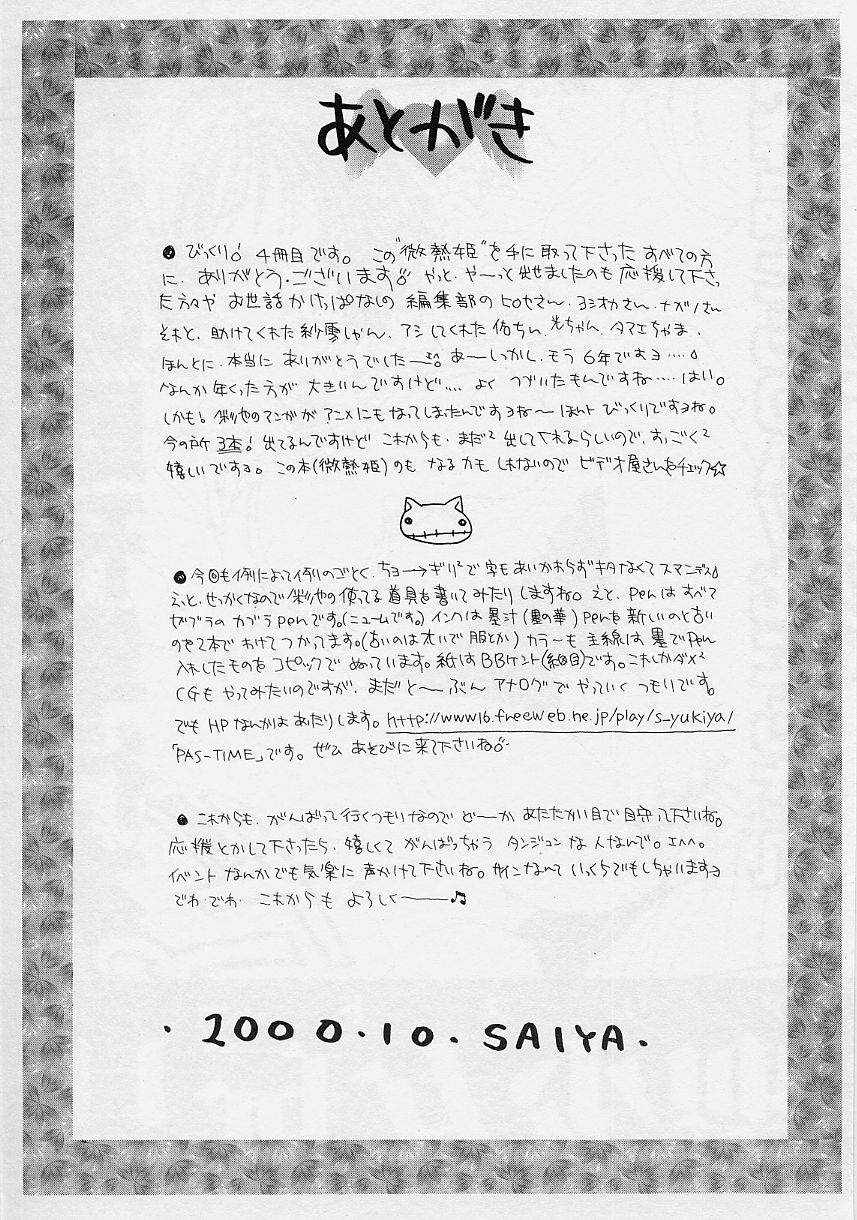 あとがき
●びっくり♪ 4冊目です。 この"微熱姫"を手に取って下さった すべての方
に、ありがとう・ございます♪ やっと、や〜っと 出せましたのも 応援して下さっ
た方々や お世話かけっぱなしの 編集部のヒロセさん、ヨシオカさん、ナガノさん
それと、助けてくれた 紗雪しゃん、アシしてくれた 佑ちぃ、光ちゃん、タマエちゃま、
ほんとに、本当に ありがとうでした— あ—しっかし、もう 6年ですョ‥‥。
なんか 早くった方が 大きいんですけど‥‥ よく つづいたもんですね‥‥ はい。
しかも! 彩也のマンガが アニメにもなってしまったんですョね〜 ほんト びっくりですョね。
今の所 3本! 出てるんですけど これからも、まだ² 出して下れるらしいので、すっごく²
嬉しいですョ。 この本(微熱姫)のも なるカモ しれないので ビデオ屋さんをチェック☆
●今回も例によって例のごとく、ちョ—→ギリ²で 字もあいかわらずキタなくて スマンデス♪
えっと、せっかくなので 彩也の使ってる 道具を書いて みたり しますね。 えと、penは すべて
ゼブラの カブラpenです。(ニュームです。) インクは 墨汁(墨の華) penを 新しいのと古い
のや2本で わけて つかってます。(古いのは オいで 服とか) カラーも 主線は 墨でpen
入れしたものを コピックで ぬっています。紙は BBケント(細目)です。これしかダメ²
CGも やってみたいのですが、まだ と〜 ぶん アナログで やっていく つもりです。
でも HPなんかは あったりします。 http://www16.freeweb.ne.jp/play/s_yukiya/
「PAS-TIME」です。 ぜひ あそびに 来て下さいね♪
●これからも、がんばって 行くつもりなので ど—か あたたかい目で 見守って下さいね。
応援とかして下さったら、嬉しくて がんばっちゃう タンジュン な人なんで。エヘヘ。
イベント なんかでも気楽に 声かけて下さいね。 サインなんて いっくらでもしちゃいますョ
でわ・でわ、 これからも よろしく——♫
・2000・10・SAIYA・